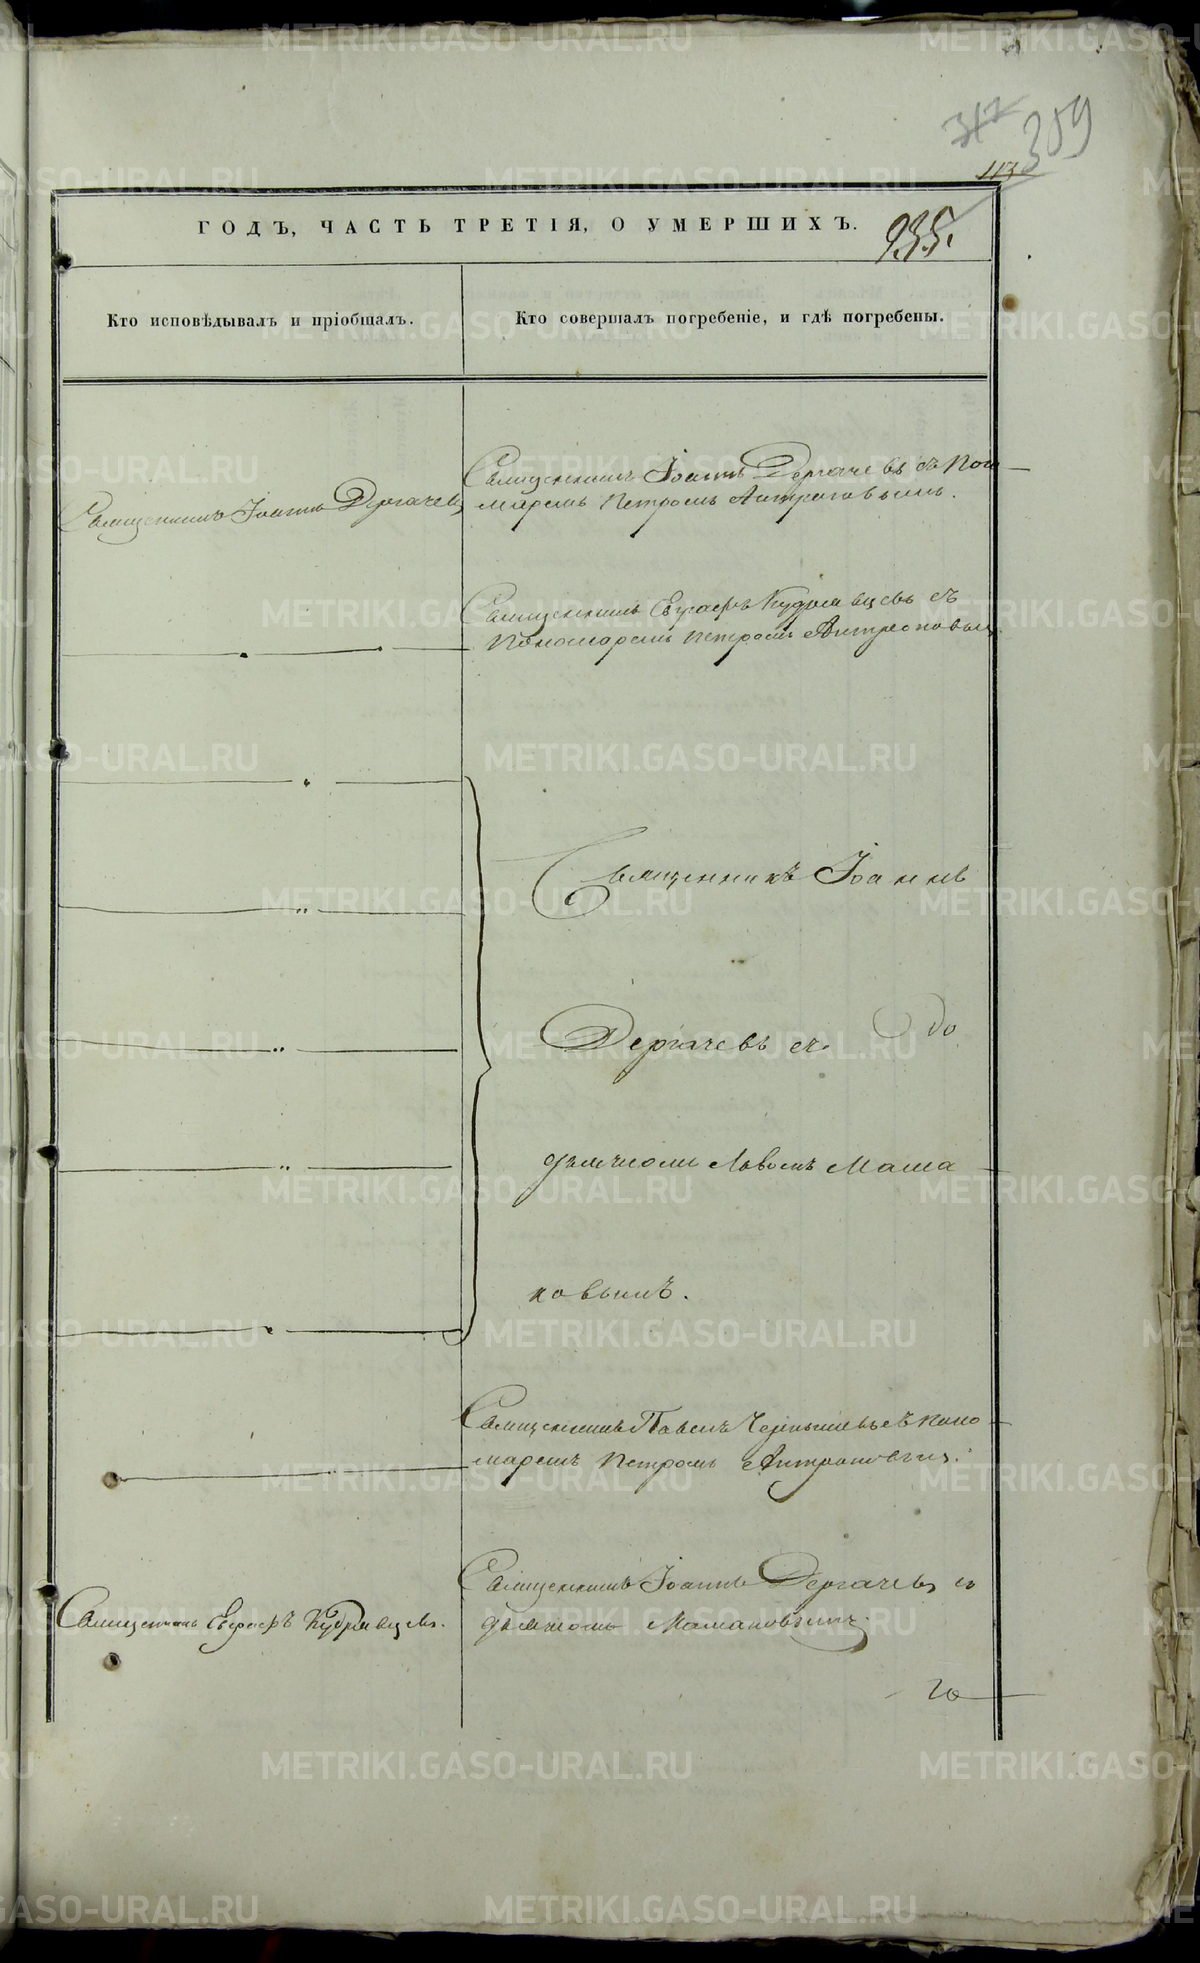 317 359
113
ГОДЪ, ЧАСТЬ ТРЕТІЯ, О УМЕРШИХЪ. 935.
Кто исповѣдывалъ и пріобщалъ.
Кто совершалъ погребеніе, и гдѣ погребены.
Священникъ Іоаннъ Дергачевъ
Священникъ Іоаннъ Дергачевъ съ Поно
маремъ Петромъ Антроповымъ.
Священникъ Евграфъ Кудрявцевъ съ
Пономаремъ Петромъ Антроповымъ
Священникъ Іоаннъ
Дергачевъ съ
дьячкомъ Львомъ Мама
ковымъ.
Священникъ Павелъ Чернышевъ съ Поно
маремъ Петромъ Антроповымъ.
Священникъ Евграфъ Кудрявцевъ.
Священникъ Іоаннъ Дергачевъ съ
дьячкомъ
METRIKI.GASO-URAL.RU